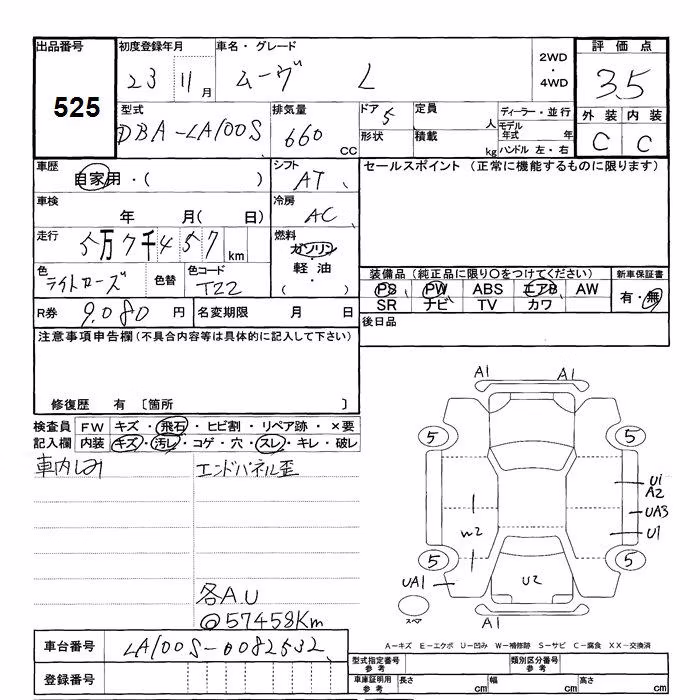 出品番号 525
初度登録年月 23 11月
車名・グレード ムーヴ L
2WD・4WD
評価点 3.5
外装 C 内装 C
型式 DBA-LA100S
排気量 660 CC
ドア 5
形状
定員 人
積載 kg
ディーラー・並行
モデル年式 年
ハンドル 左・右
車歴 自家用・( )
シフト AT
セールスポイント (正常に機能するものに限ります)
車検 年 月( 日)
冷房 AC
走行 5万7千457km
燃料 ガソリン・軽油・( )
色 ライトローズ
色替
色コード T22
装備品(純正品に限り○をつけてください)
PS PW ABS エアB AW
SR ナビ TV カワ
新車保証書 有・無
R券 9.080円
名変期限 月 日
後日品
注意事項申告欄(不具合内容等は具体的に記入して下さい)
修復歴 有 〔箇所 〕
検査員記入欄
FW キズ・飛石・ヒビ割・リペア跡・×要
内装 キズ・汚レ・コゲ・穴・スレ・キレ・破レ
車内しみ
エンドパネル歪
各A.U
@57458Km
A1 A1
5 5
U1
A2
UA3
U1
W2
5 5
UA1
U2
A1
スペア
A-キズ E-エクボ U-凹み W-補修跡 S-サビ C-腐食 XX-交換済
車台番号 LA100S-0082532
登録番号
型式指定番号 参考
類別区分番号 参考
車庫証明用 参考 長さ cm 幅 cm 高さ cm